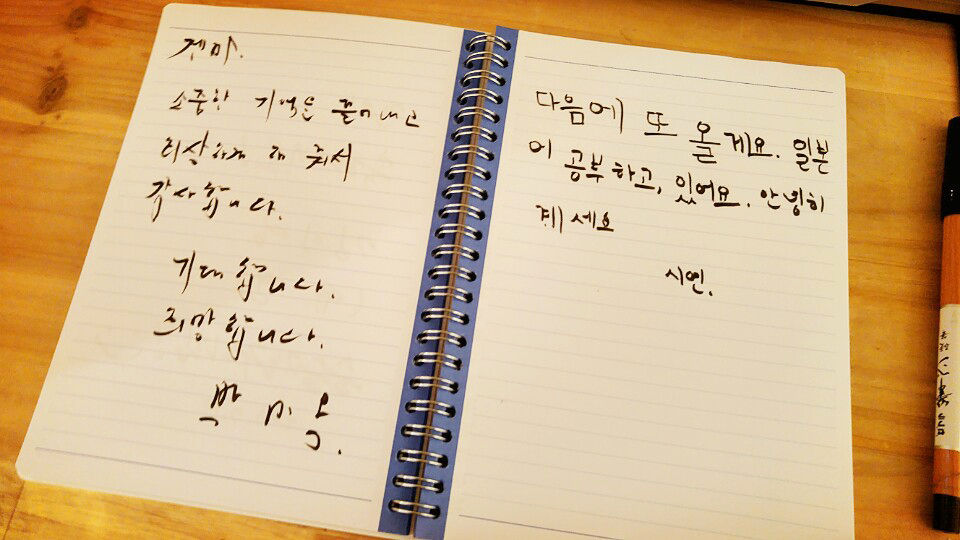 소중한 기억을 끌어내고
회상하게 해 줘서
감사합니다.
기대합니다.
희망합니다.
다음에 또 올게요. 일본
어 공부하고, 있어요. 안녕히
계세요
시연.